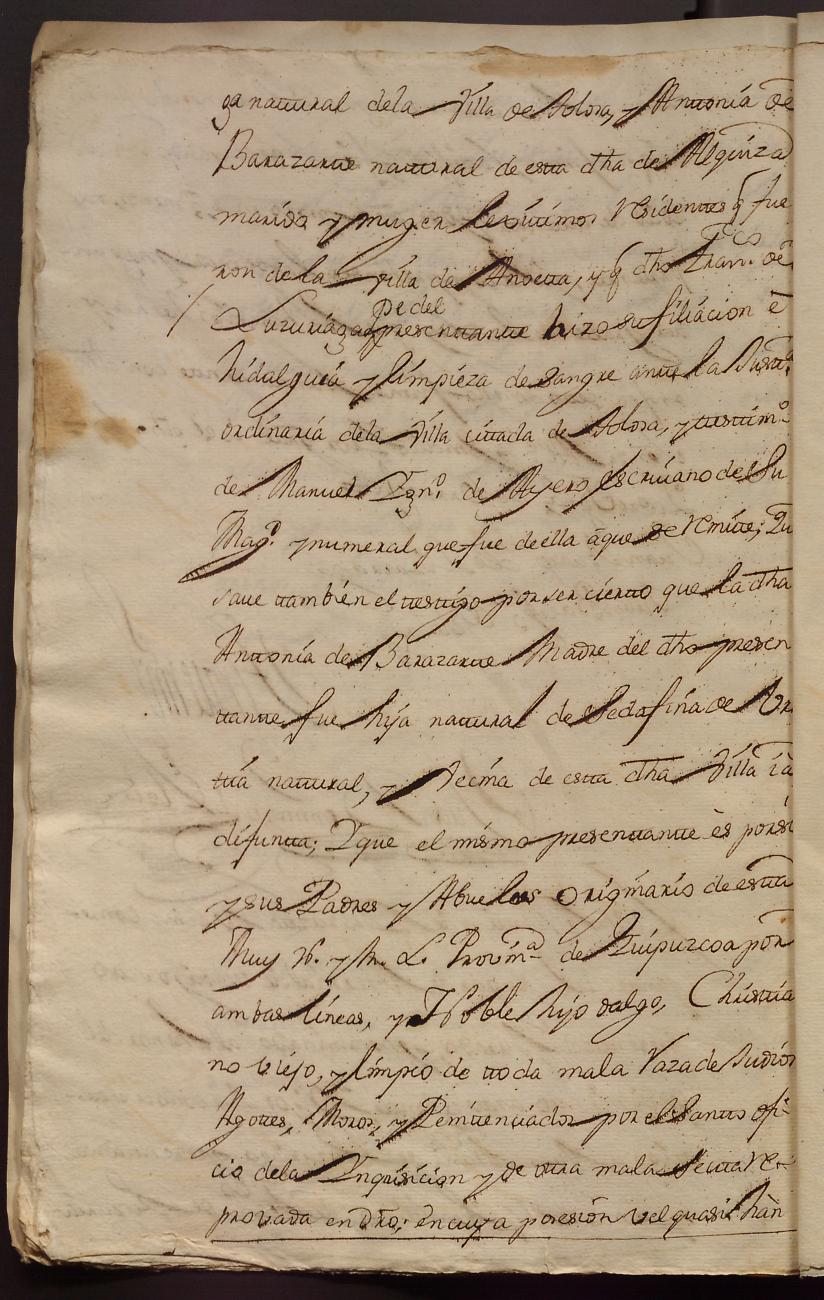 ga natural dela Villa de Tolosa, y Antonia de
Barazarte natural de esta dha de Alquiza
marido y muger lexitimos residentes q fue
ron de la villa de Anoeta, y q dho Franco. de
Luzuriaga Pe del presentante hizo su filiacion è
hidalguia y limpieza de sangre ante la Justa.
ordinaria dela Villa citada de Tolosa, y testimo.
de Manuel Ygno. de escrivano de Su
Magd. y numeral que fue de ella à que se remite; Qu
save tambien el testigo por ser cierto que la dha
Antonia de Barazarte Madre del dho presen
tante fue hija natural de Sedafina de
natural, y vecina de esta dha Villa ià
difunta; Y que el mismo presentante ès por sí
y sus Padres y Abuelos originario de esta
Muy N. y M. L. Provina. de Guipuzcoa por
ambas lineas, y Noble hijo dalgo, Christia
no viejo, y limpio de toda mala raza de Judios
Agotes, Moros, y Penitenciados por el Santo ofi-
cio dela Inquisicion y de otra mala Secta re-
provada en Dro; èn cuya posesion vel quasi hàn